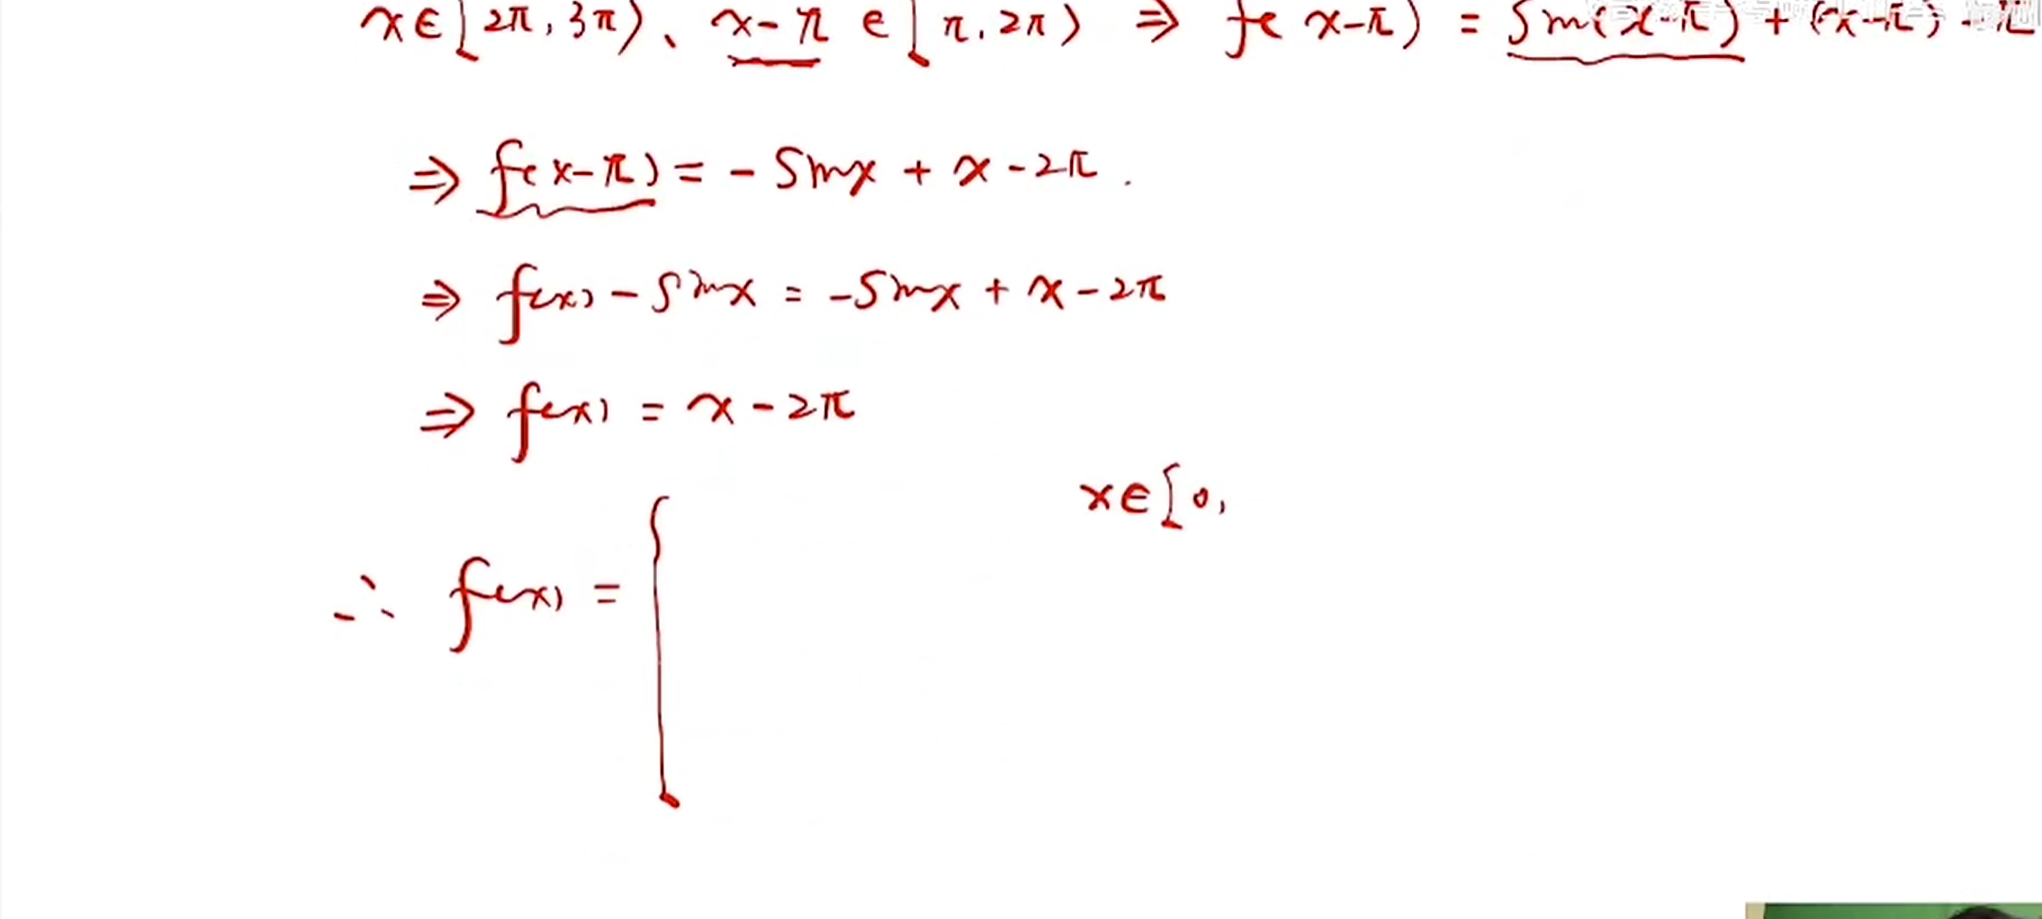 x∈[2π,3π)、x-π∈[π,2π) ⇒ f(x-π) = sin(x-π) + (x-π) - π
⇒ f(x-π) = - sinx + x - 2π.
⇒ f(x) - sinx = -sinx + x - 2π
⇒ f(x) = x - 2π
x∈[0,
∴ f(x) = {